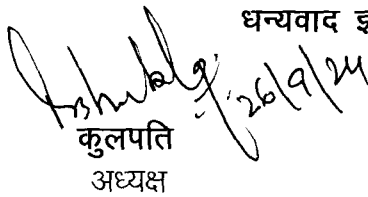 धन्यवाद
26/9/24
कुलपति
अध्यक्ष